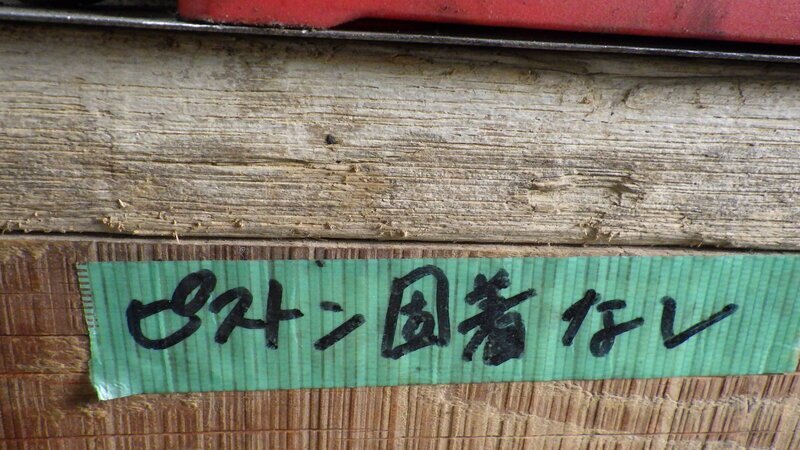 ピストン固着なし